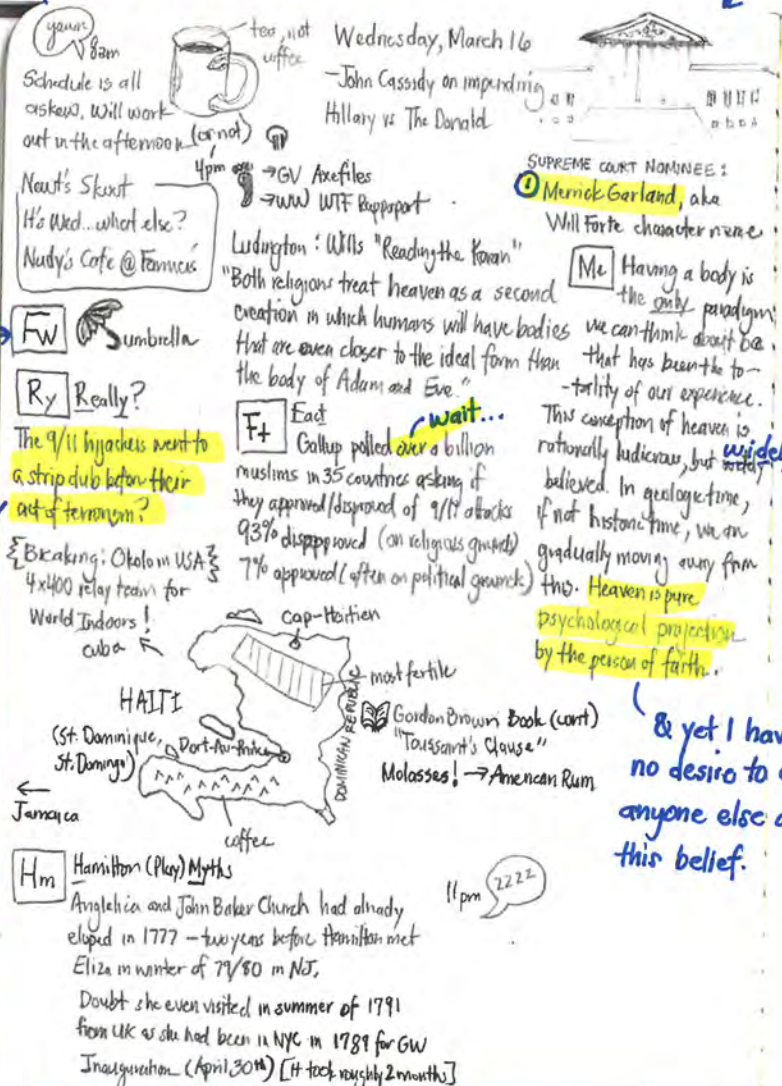 yawn
8am
tea, not
coffee
Schedule is all
askew, will work
out in the afternoon (or not)
4pm
Newt's Skirt
It's Wed... what else?
Nudy's Cafe @
Fw
Umbrella
Ry
Really?
The 9/11 hijackers went to
a strip club before their
act of terrorism?
Breaking: Okolo in USA
4x400 relay team for
World Indoors!
Wednesday, March 16
-John Cassidy on impending
Hillary vs The Donald
→GV Axefiles
→WW WTF Rappaport
Ludington: Wills "Reading the Koran"
"Both religions treat heaven as a second
creation in which humans will have bodies
that are even closer to the ideal form than
the body of Adam and Eve."
Ft
Fact
wait...
Gallup polled over a billion
muslims in 35 countries asking if
they approved/disproved of 9/11 attacks
93% disapproved (on religious grounds)
7% approved (often on political grounds)
SUPREME COURT NOMINEE:
! Merrick Garland, aka
Will Forte character name
Me
Having a body is
the only paradigm
we can think about bc
that has been the to-
-tality of our experience.
This conception of heaven is
rationally ludicrous, but widely
believed. In geologic time,
if not historic time, we are
gradually moving away from
this. Heaven is pure
psychological projection
by the person of faith.
& yet I hav
no desire to
anyone else
this belief.
cuba
cap-Haitien
most fertile
HAITI
(St. Dominique,
St. Domingo)
Port-Au-Prince
DOMINICAN REPUBLIC
Jamaica
coffee
Gordon Brown Book (cont)
"Toussaint's Clause"
Molasses! → American Rum
Hm
Hamilton (Play) Myths
Anglelica and John Baker Church had already
eloped in 1777 - two years before Hamilton met
Eliza in winter of 79/80 in NJ.
Doubt she even visited in summer of 1791
from UK as she had been in NYC in 1789 for GW
Inauguration (April, 30th) [It took roughly 2 months]
11pm
zzzz